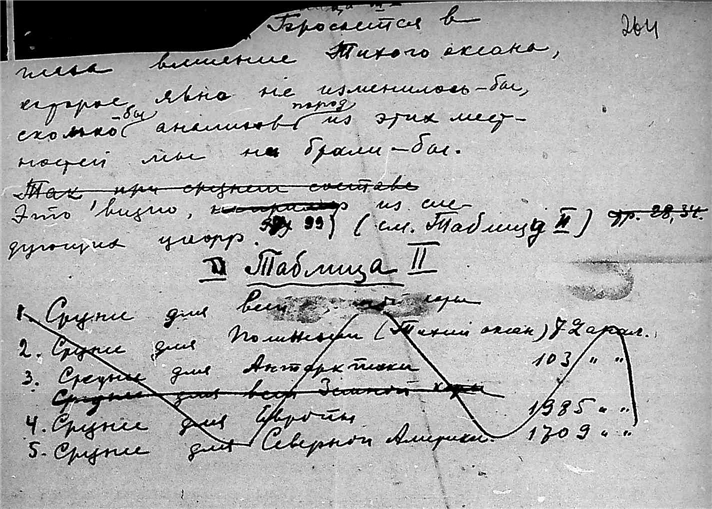 264
бросается в
глаза влияние Тихого океана,
которое явно не изменилось-бы,
сколько-бы анализов пород из этих мест-
ностей мы не брали-бы.
Так при среднем составе
Это видно, например из сле-
дующих цифр. 99 (см. Таблица II) стр. 28, 34.
Таблица II
1. Средние для всей коры
2. Средние для Полинезии (Тихий океан) 72 анал.
3. Средние для Антарктики 103 " "
Средние для всей Земной коры
4. Средние для Европы 1985 " "
5. Средние для Северной Америки 1709 " "